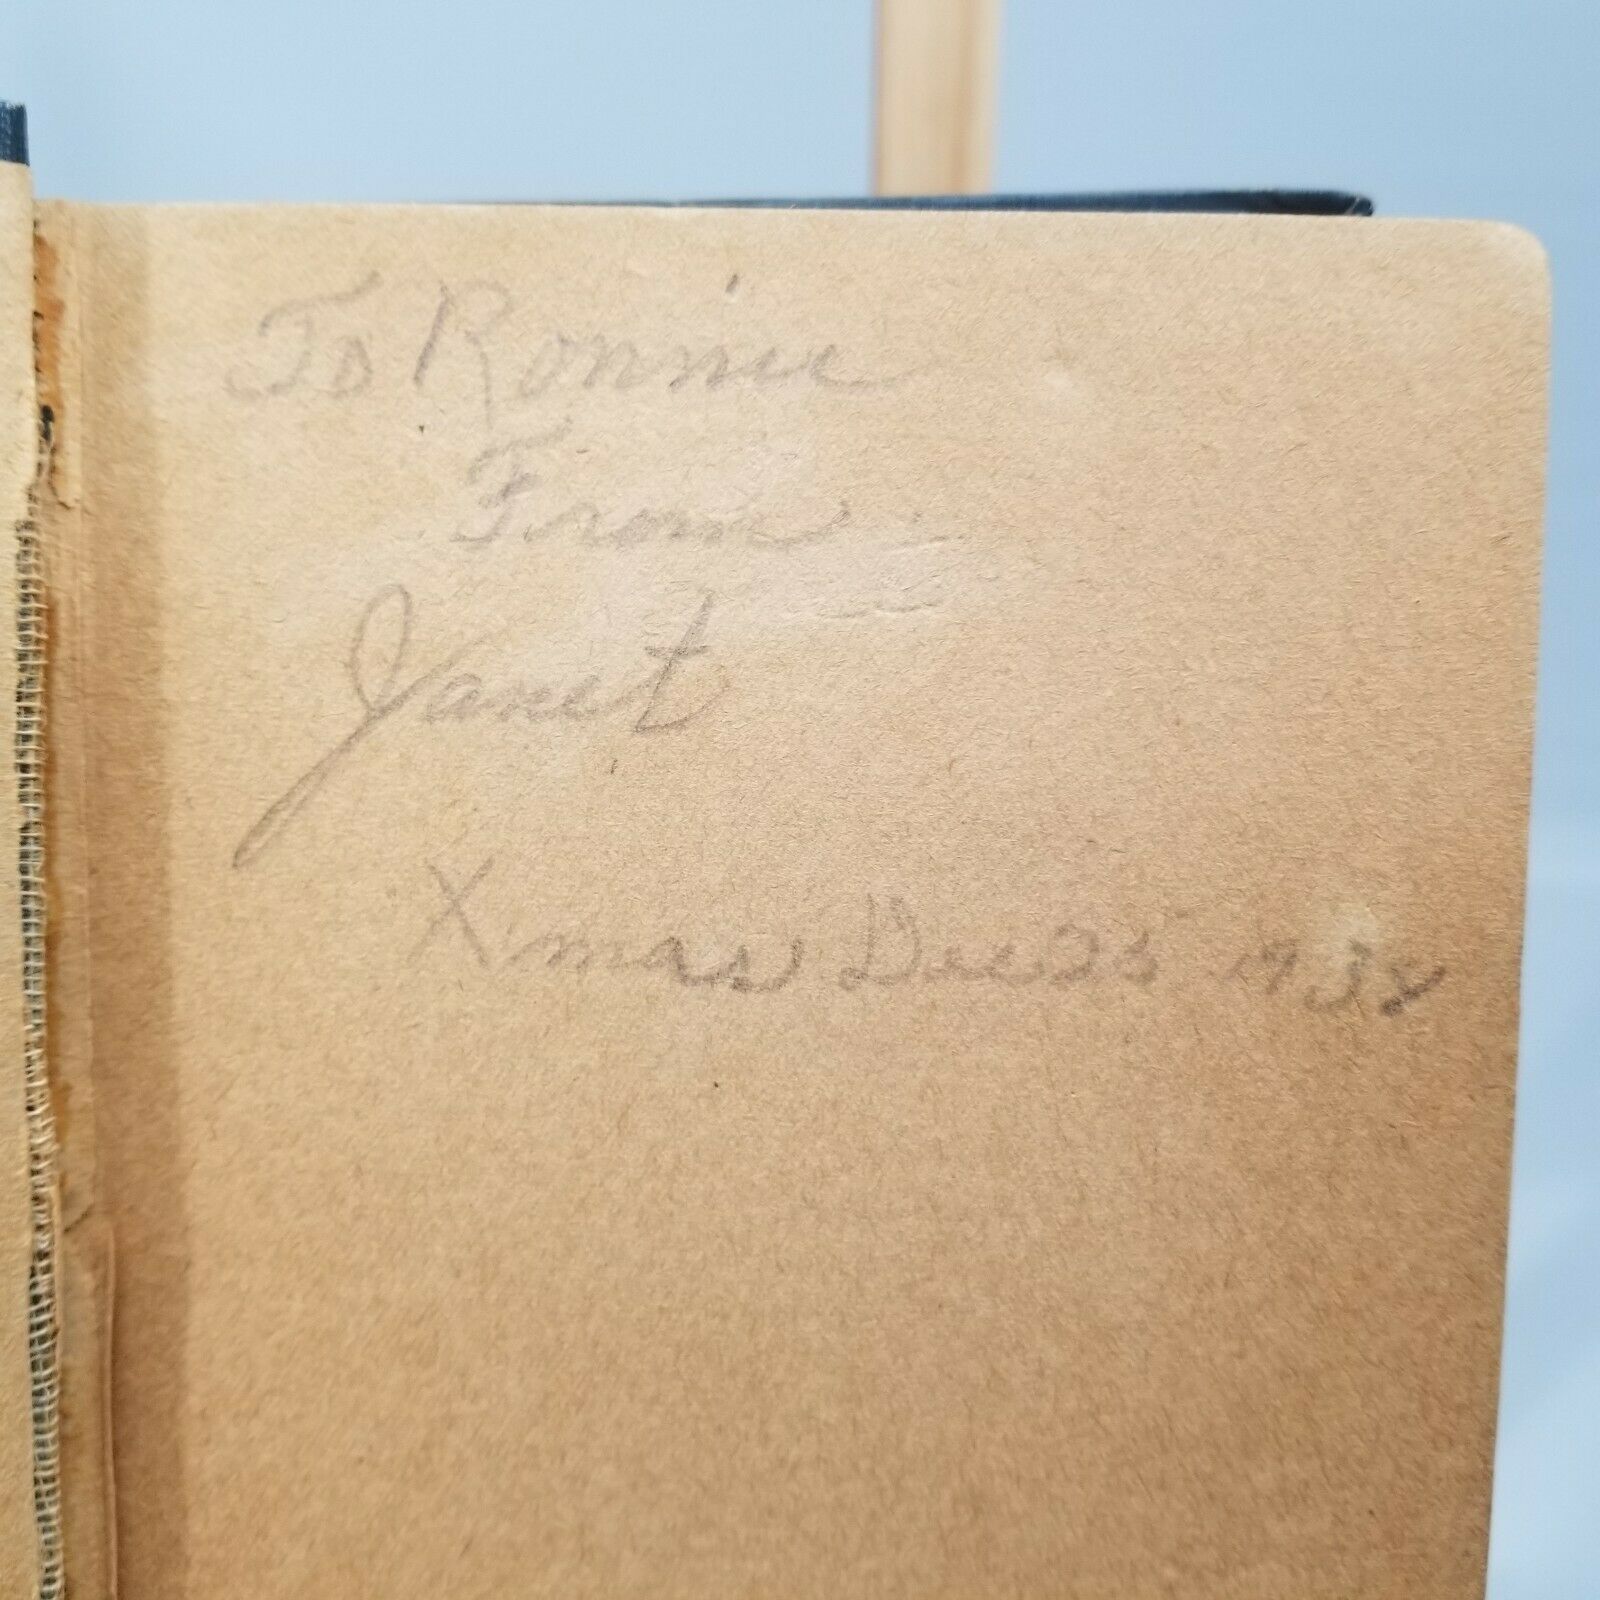 To Ronnie
From
Janet
Xmas Dec 25 1938